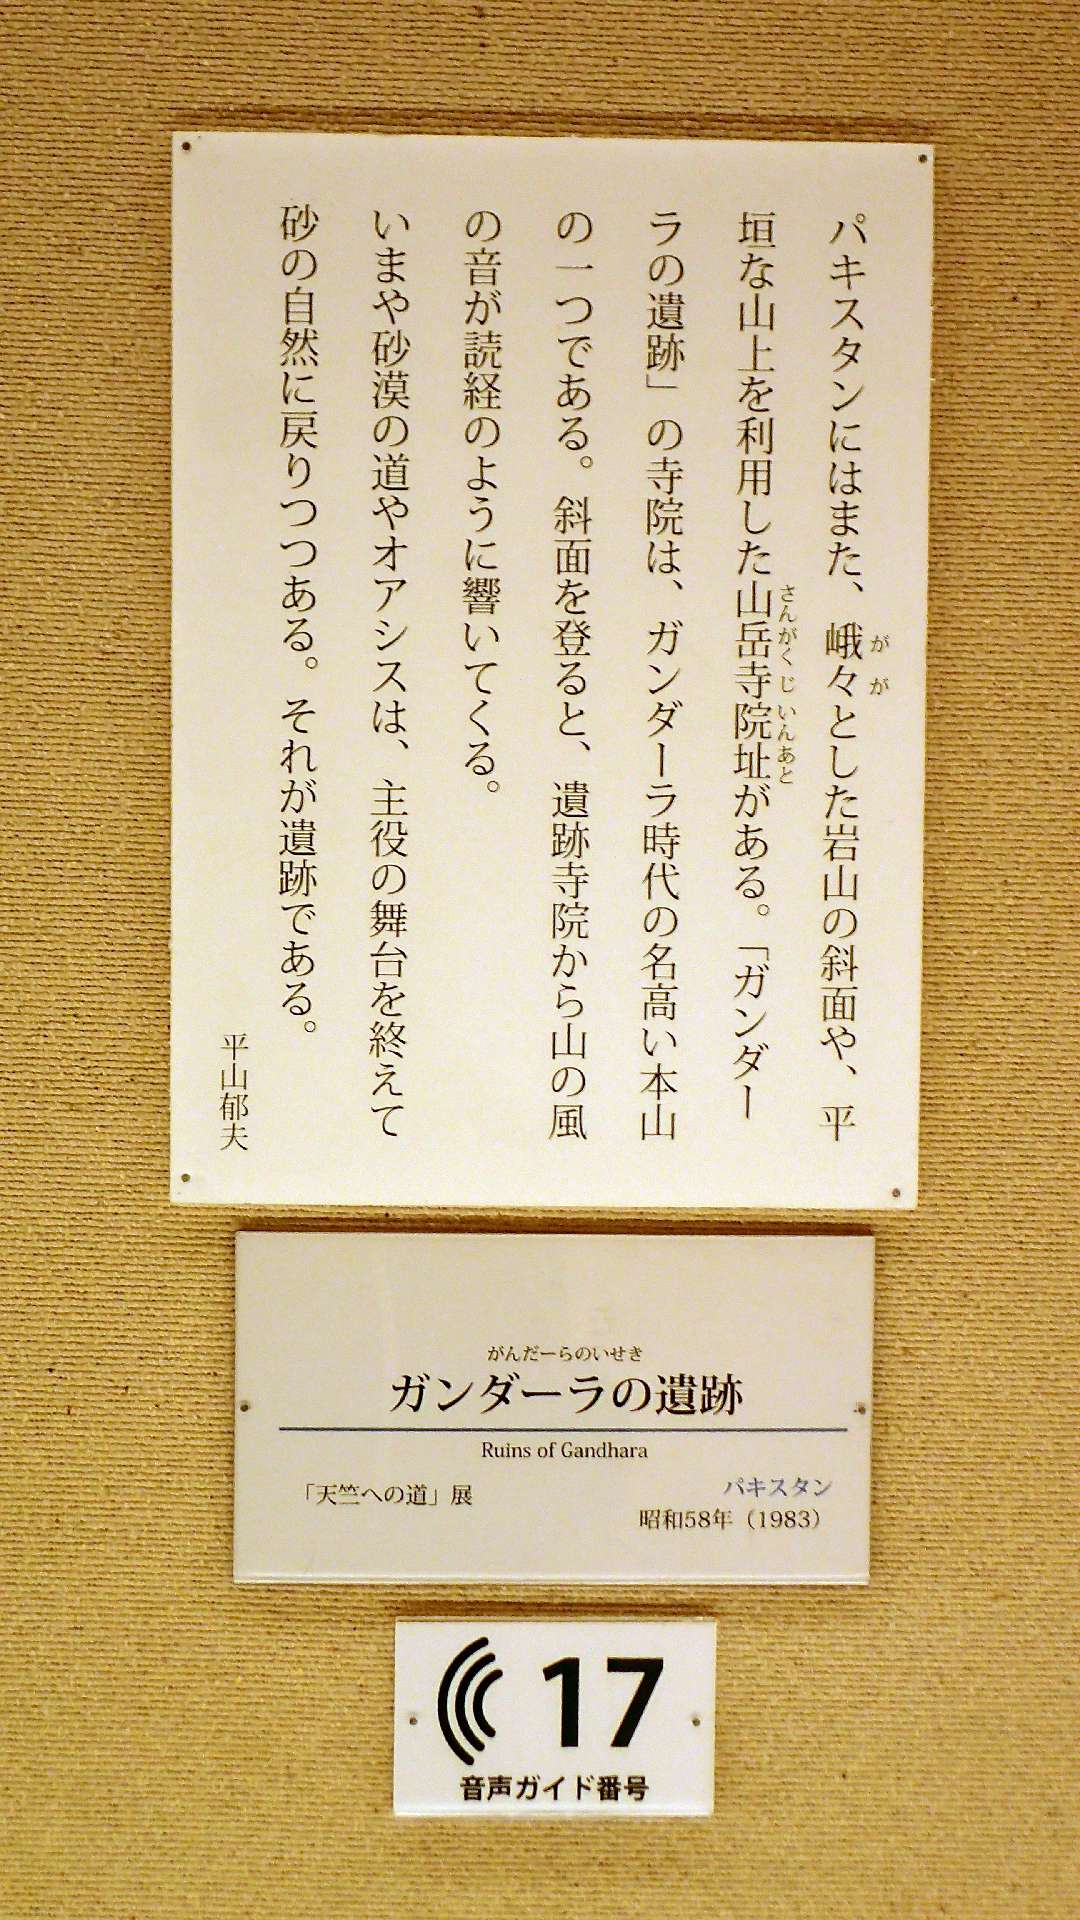 パキスタンにはまた、峨々とした岩山の斜面や、平
がが
垣な山上を利用した山岳寺院址がある。「ガンダー
さんがくじいんあと
ラの遺跡」の寺院は、ガンダーラ時代の名高い本山
の一つである。斜面を登ると、遺跡寺院から山の風
の音が読経のように響いてくる。
いまや砂漠の道やオアシスは、主役の舞台を終えて
砂の自然に戻りつつある。それが遺跡である。
平山郁夫
がんだーらのいせき
ガンダーラの遺跡
Ruins of Gandhara
「天竺への道」展
パキスタン
昭和58年（1983）
17
音声ガイド番号